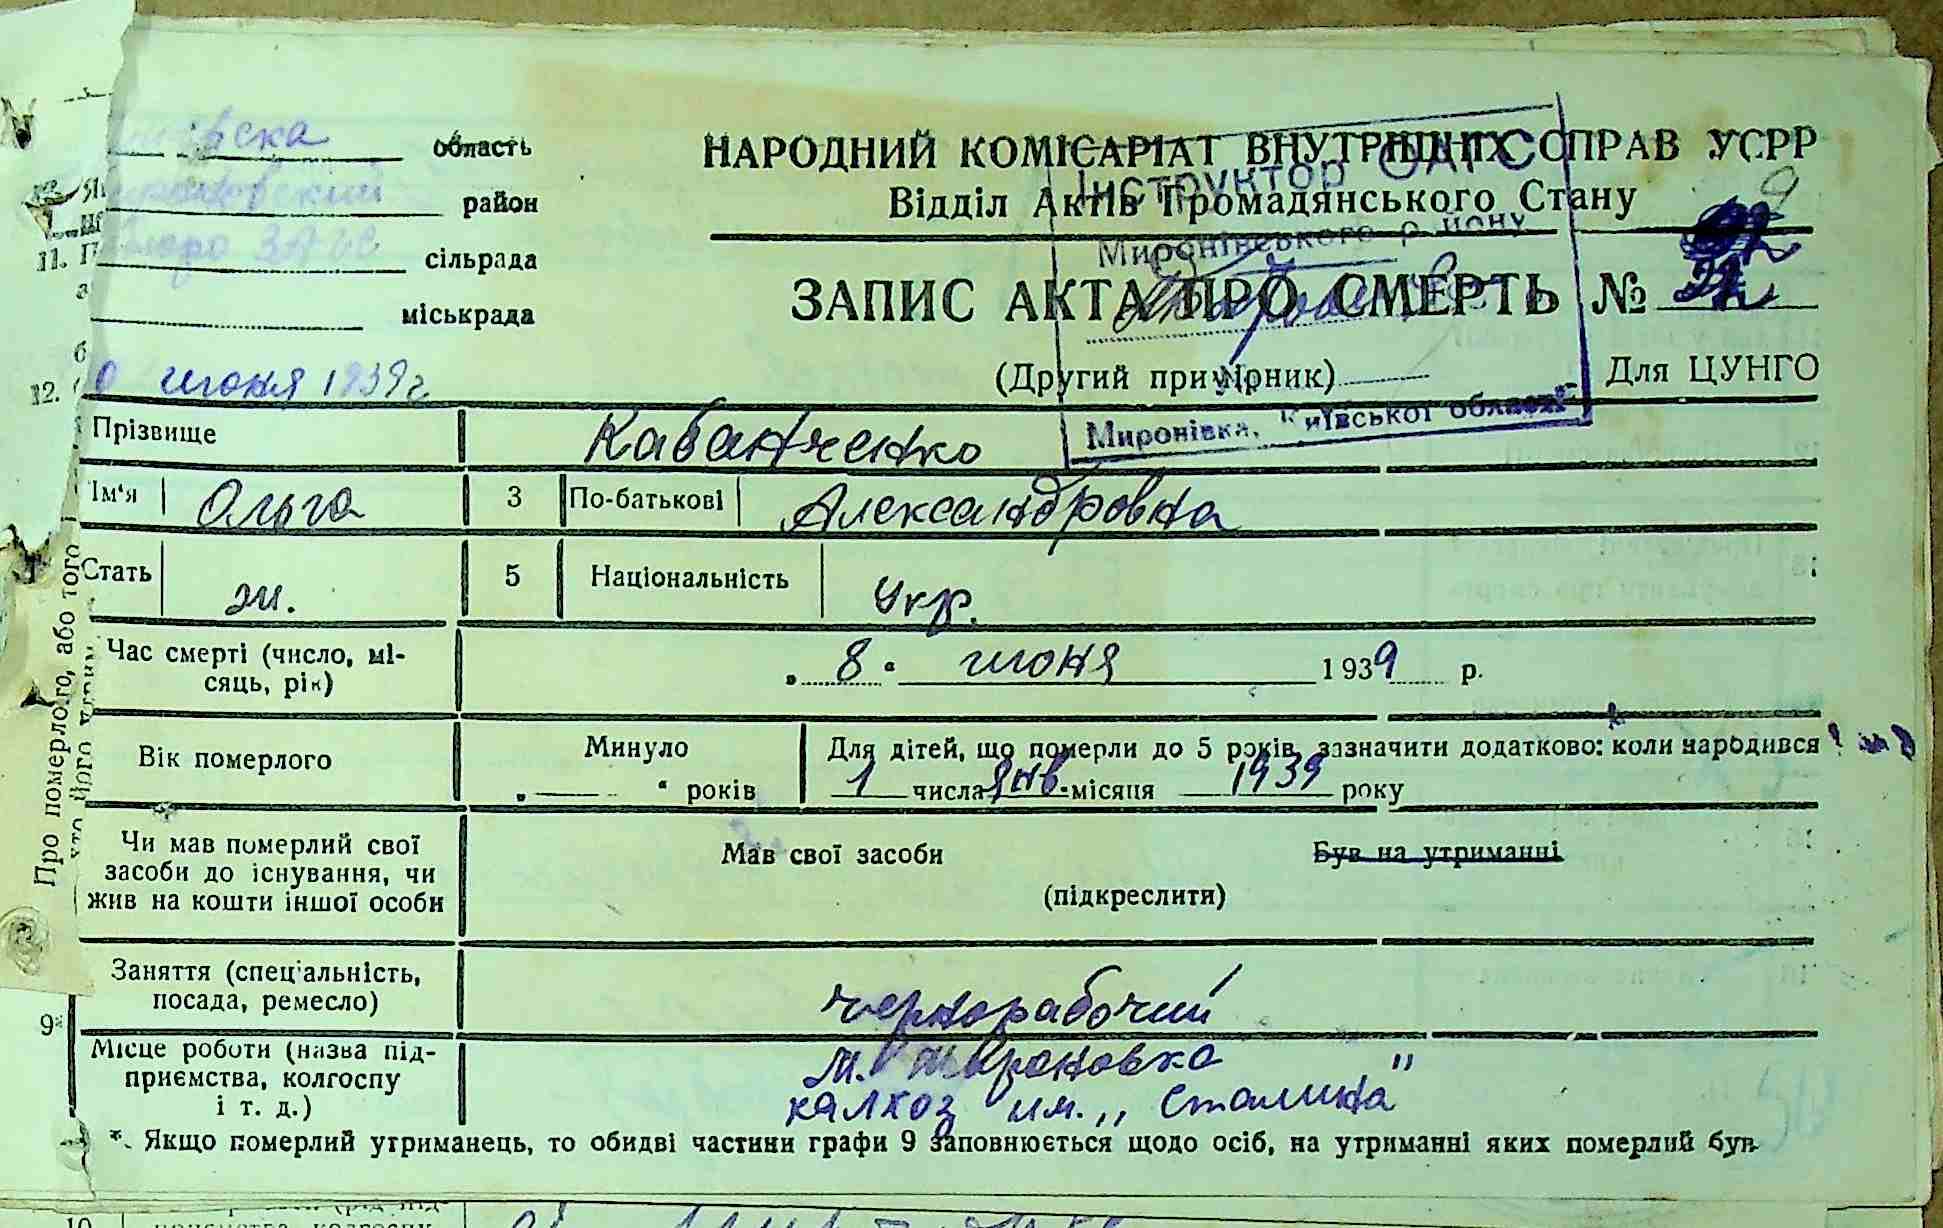 область
район
сільрада
міськрада
НАРОДНИЙ КОМІСАРІАТ ВНУТРІШНІХ СПРАВ УСРР
Відділ Актів Громадянського Стану
ЗАПИС АКТА ПРО СМЕРТЬ №
(Другий примірник)
Для ЦУНГО
Інструктор ОАГС
Миронівського району
Миронівка, Київської області
июня 1939 г
Прізвище Кабанченко
Ім'я Ольга 3 По-батькові Александровна
Стать ж. 5 Національність Укр.
Час смерті (число, мі-
сяць, рік)
„ 8 " июня 1939 р.
Вік померлого
Минуло
„ — " років
Для дітей, що померли до 5 років, зазначити додатково: коли народився
1 числа янв. місяця 1939 року
Чи мав померлий свої
засоби до існування, чи
жив на кошти іншої особи
Мав свої засоби Був на утриманні
(підкреслити)
Заняття (спеціальність,
посада, ремесло)
чернорабочий
9*
Місце роботи (назва під-
приємства, колгоспу
і т. д.)
калхоз им. „Сталина"
*. Якщо померлий утриманець, то обидві частини графи 9 заповнюється щодо осіб, на утриманні яких померлий був
11.
12.
Про померлого, або того
10